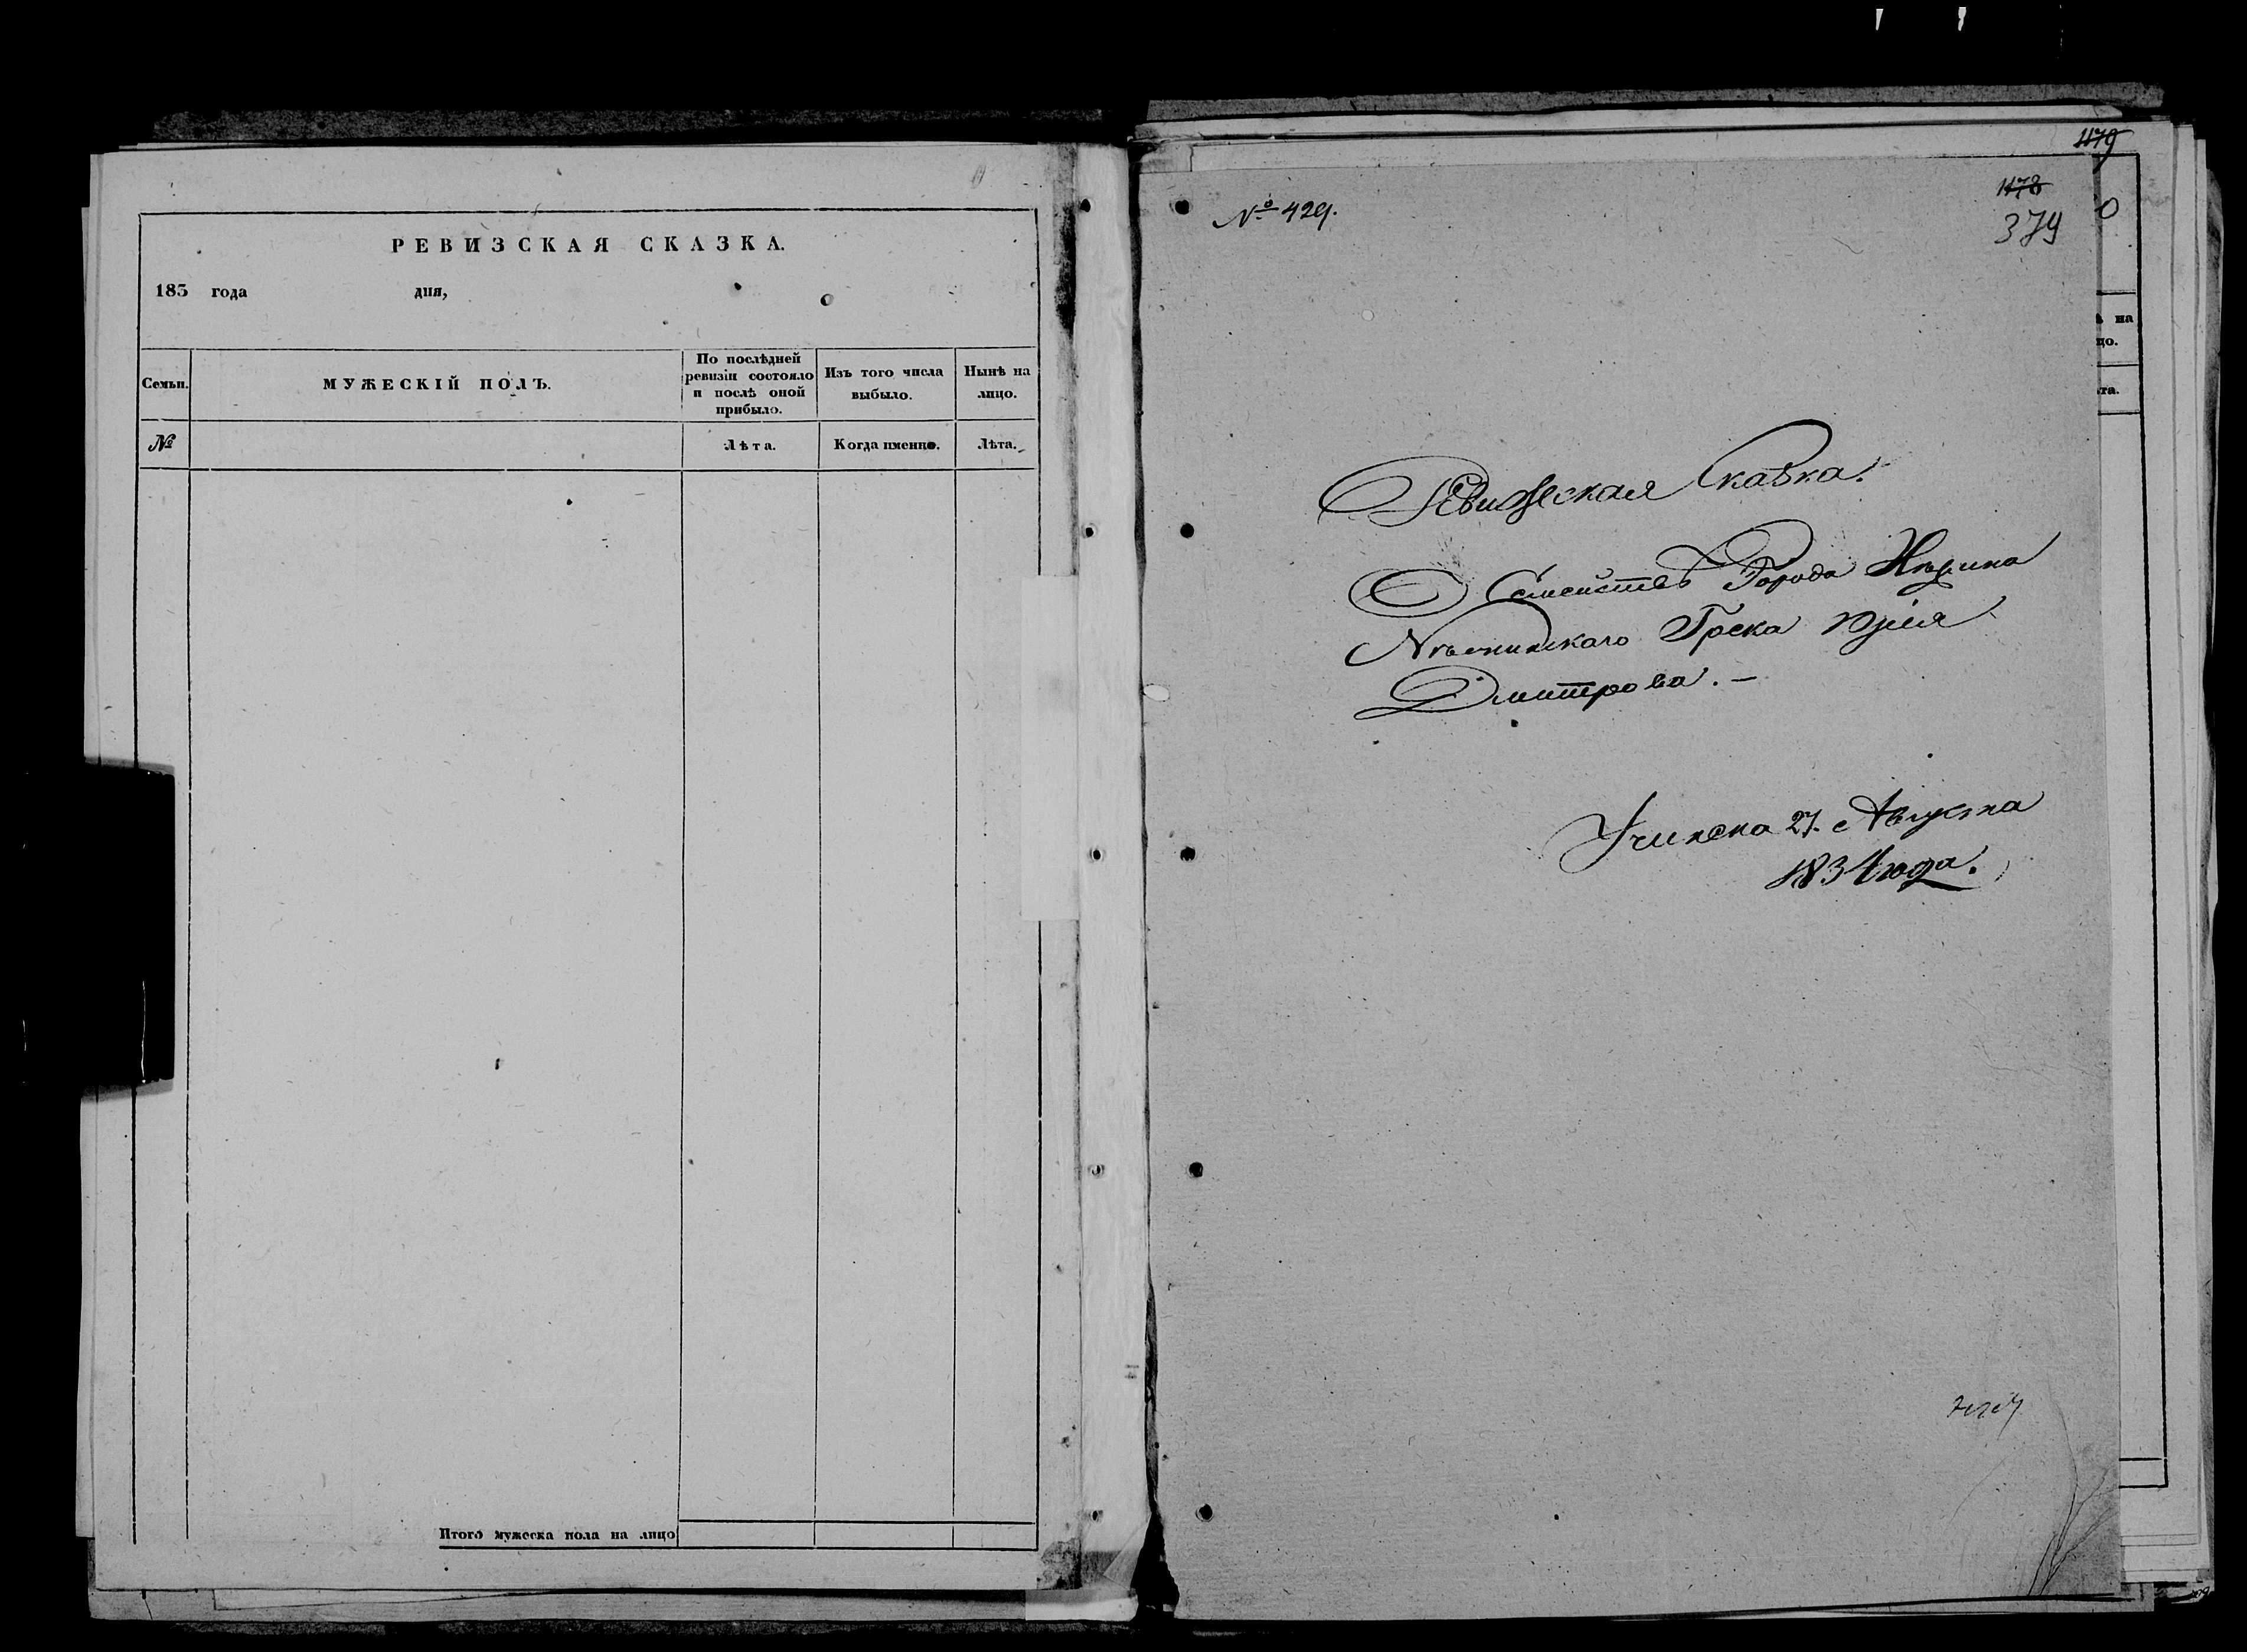 РЕВИЗСКАЯ СКАЗКА.
185 года дня,
Семьи.
МУЖЕСКІЙ ПОЛЪ.
По послѣдней
ревизіи состояло
и послѣ оной
прибыло.
Изъ того числа
выбыло.
Нынѣ на
лицо.
№
Лѣта.
Когда именно.
Лѣта.
Итого мужеска пола на лицо
1179
1178
379
№ 429.
Ревижеская Сказка.
О Семействѣ Города Нѣжина
Нѣжинскаго Грека Юрія
Дмитрова. –
Учинена 27. Августа
1834 года.
ѣ на
цо.
та.